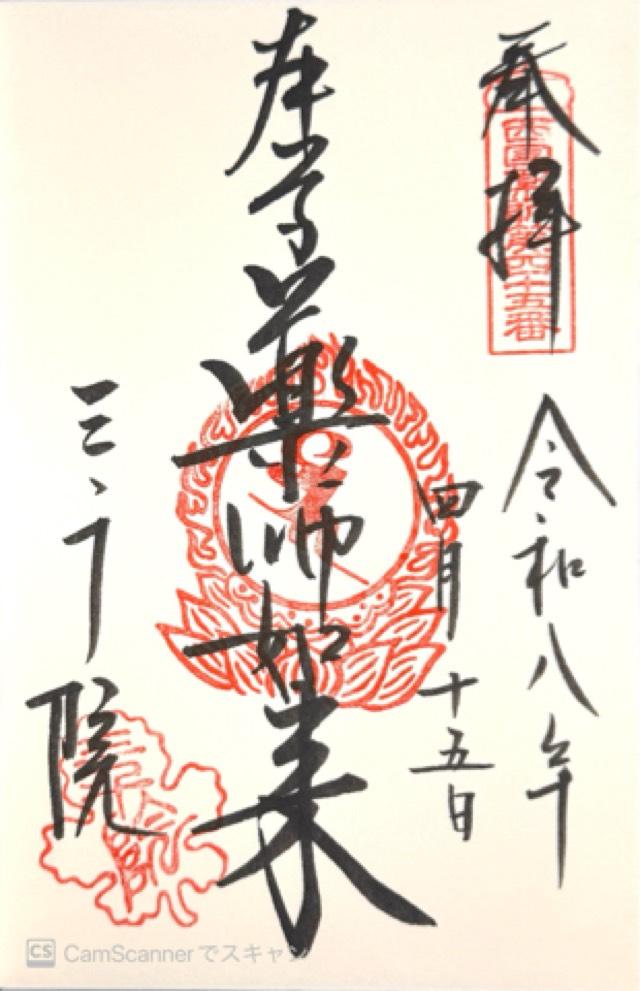 奉拝
西国薬師第四十五番
令和八年
四月十五日
本尊薬師如来
三千院
CS CamScannerでスキャン